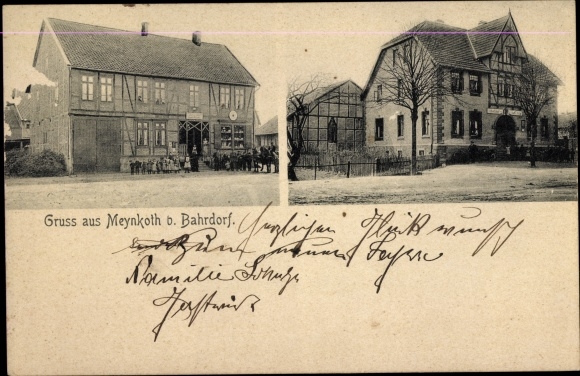 Gruss aus Meynkoth b. Bahrdorf.
Herzlichen Glückwunsch
zum neuen Jahre
Familie Schulze